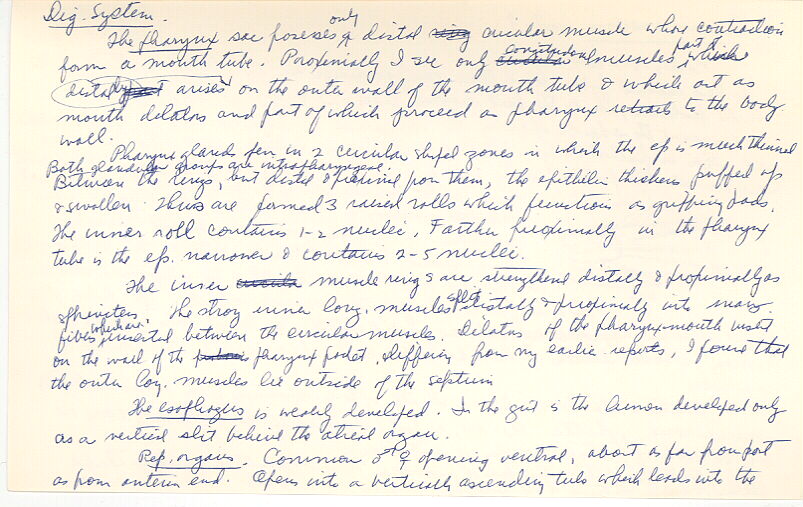 Dig. System.
The pharynx sac posesses only a distal circular muscle whose contraction
form a mouth tube. Proximally I see only longitudinal muscles, part of which
distally arises on the outer wall of the mouth tube & which act as
mouth dilators and part of which proceed as pharynx retractors to the body
wall.
Pharynx glands open in 2 circular shaped zones in which the ep is much thinned
Both glandular groups are intrapharyngeal.
Between the rings, but distal & proximal from them, the epithelim thickens, puffed up
& swollen. Thus are formed 3 raised rolls which function as gripping pads.
The inner roll contains 1-2 nuclei. Farther proximally in the pharynx
tube is the ep. narrower & contains 2-5 nuclei.
The inner muscle rings are strengthened distally & proximally as
sphincters. The strong inner long. muscles split distally & proximally into many
fibers which are inserted between the circular muscles. Dilators of the pharynx-mouth insert
on the wall of the pharynx pocket. Differing from my earlier reports, I found that
the outer long. muscles lie outside of the septum
The esophagus is weakly developed. In the gut is the lumen developed only
as a vertical slit behind the atrial organ.
Rep. organs. Common ♂ ♀ opening ventral, about as far from post
as from anterior end. Opens into a vertically ascending tube which leads into the